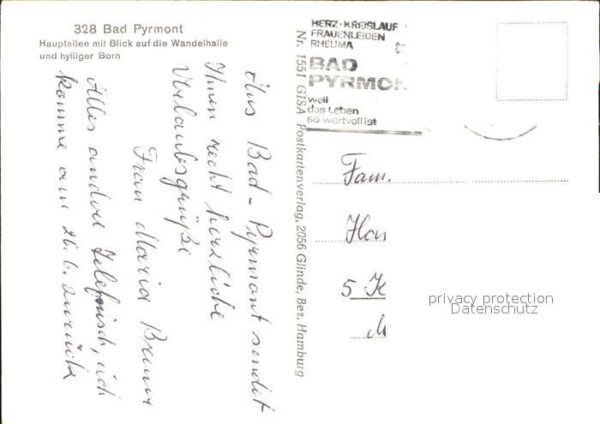 328 Bad Pyrmont
Hauptallee mit Blick auf die Wandelhalle
und hylliger Born
Aus Bad-Pyrmont sendet
Ihnen recht herzliche
Urlaubsgrüße
Frau Maria
Alles andere telefonisch, ich
komme am 26.6. zurück
Nr. 1551 GISA Postkartenverlag, 2056 Glinde, Bez. Hamburg
HERZ-KREISLAUF
FRAUENLEIDEN
RHEUMA
BAD
PYRMON
weil
das Leben
so wertvoll ist
Fam.
Han
5 K
M
privacy protection
Datenschutz